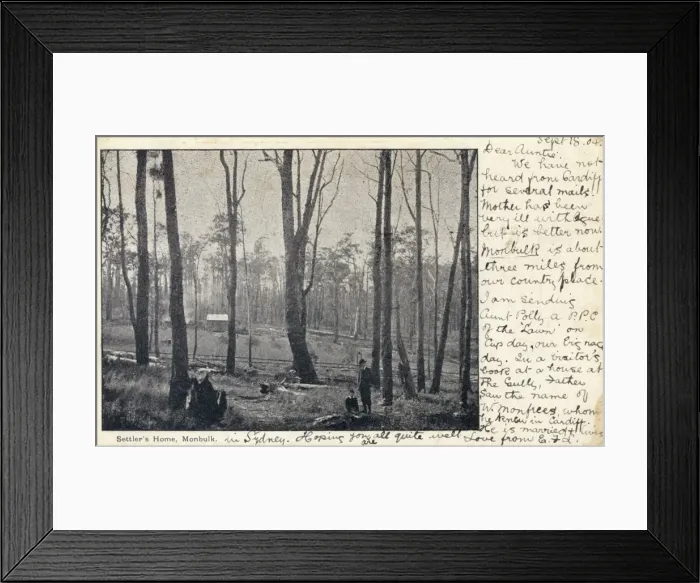 Sept 18. 04.
Dear Auntie.
We have not
heard from Cardiff
for several mails!!
Mother has been
very ill with
but is better now.
Monbulk is about
three miles from
our country place.
I am sending
Aunt Polly a P.P.C
of the 'Lawn' on
Cup day, our big race
day. In a visitor's
book at a house at
The Gully, Father
saw the name of
W Monfrees, whom
he knew in Cardiff.
He is married & living
Settler's Home, Monbulk. in Sydney. Hoping you are all quite well Love from E.